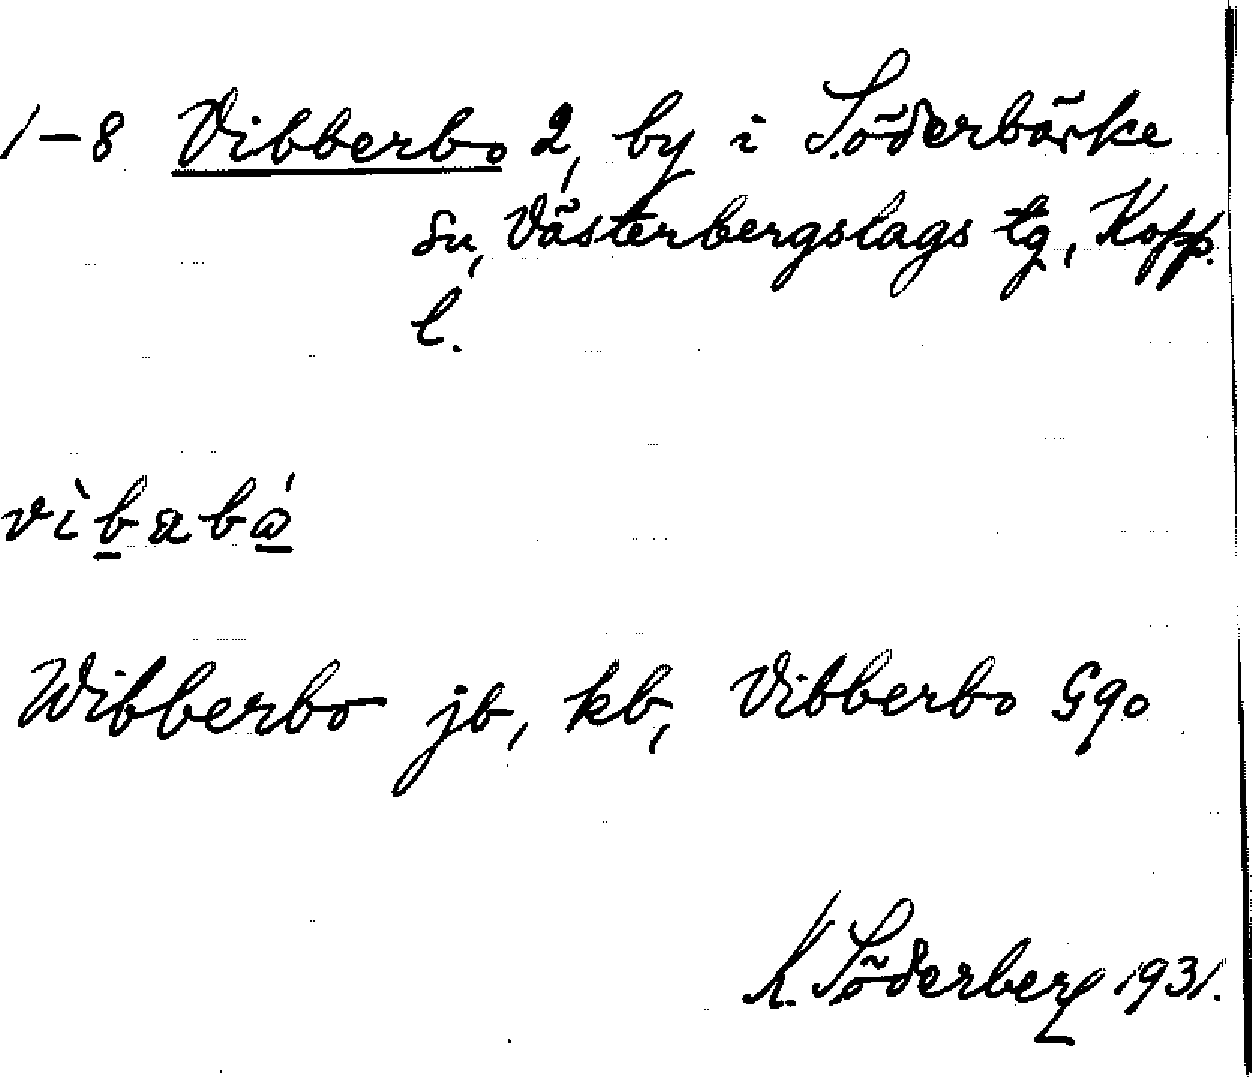 1–8 Vibberbo 2, by i Söderbärke
sn, Västerbergslags tg, Kopp.
l.
Wibberbo jb, kb, Vibberbo Gqo
K. Söderberg 1931.